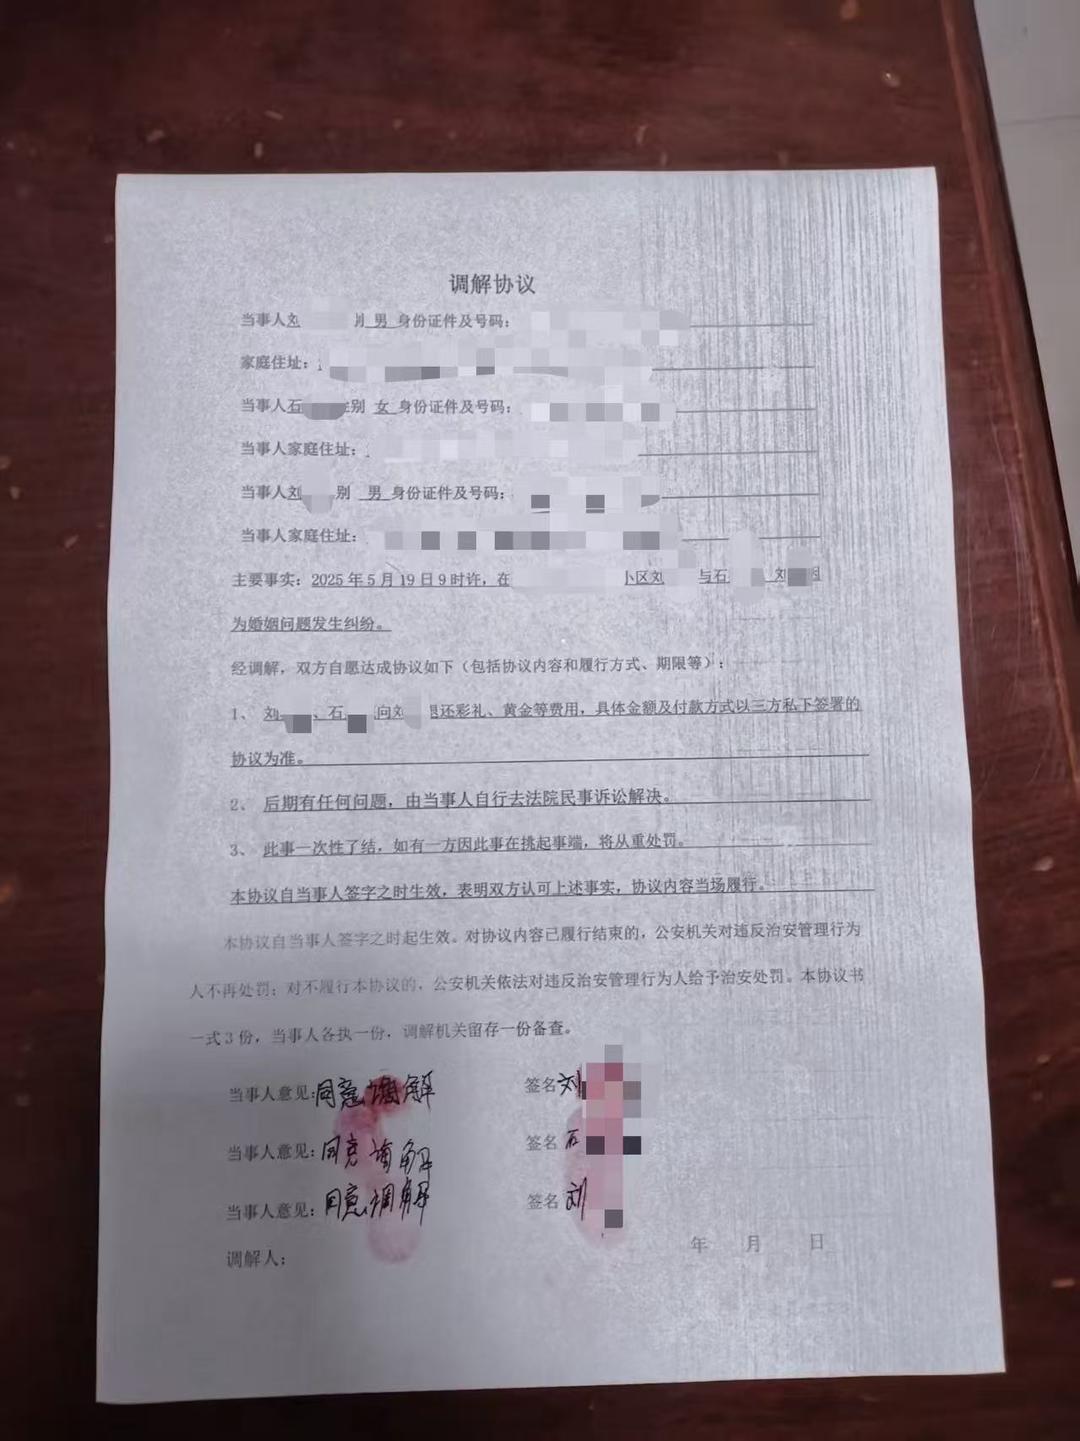 调解协议
当事人刘 别 男 身份证件及号码：
家庭住址：
当事人石 性别 女 身份证件及号码：
当事人家庭住址：
当事人刘 别 男 身份证件及号码：
当事人家庭住址：
主要事实：2025年5月19日9时许，在 小区刘 与石 、刘 因
为婚姻问题发生纠纷。
经调解，双方自愿达成协议如下（包括协议内容和履行方式、期限等）：
1、 刘 、石 向刘 退还彩礼、黄金等费用，具体金额及付款方式以三方私下签署的
协议为准。
2、 后期有任何问题，由当事人自行去法院民事诉讼解决。
3、 此事一次性了结，如有一方因此事在挑起事端，将从重处罚。
本协议自当事人签字之时生效，表明双方认可上述事实，协议内容当场履行。
本协议自当事人签字之时起生效。对协议内容已履行结束的，公安机关对违反治安管理行为
人不再处罚；对不履行本协议的，公安机关依法对违反治安管理行为人给予治安处罚。本协议书
一式3份，当事人各执一份，调解机关留存一份备查。
当事人意见：同意调解 签名 刘
当事人意见：同意调解 签名 石
当事人意见：同意调解 签名 刘
调解人：
年 月 日